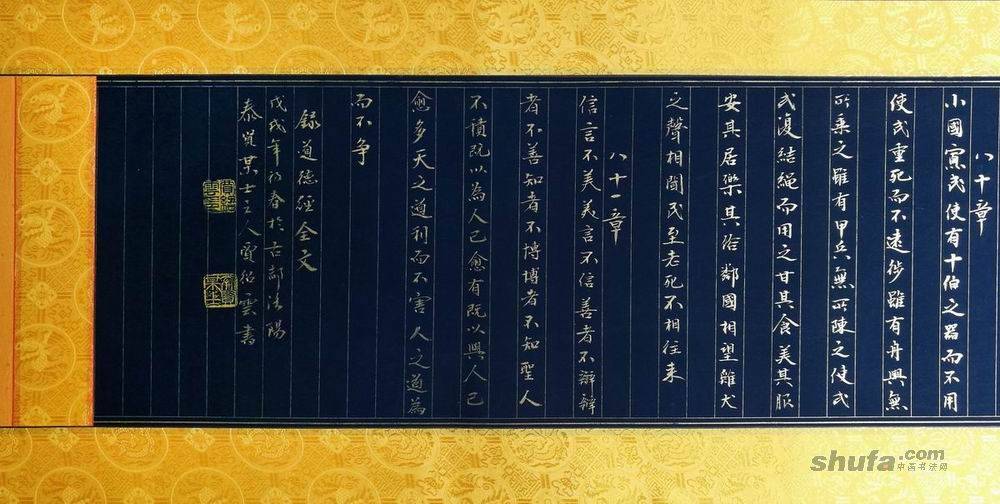 八十章
小國寡民使有十伯之器而不用
使民重死而不遠徙雖有舟輿無
所乘之雖有甲兵無所陳之使民
復結繩而用之甘其食美其服
安其居樂其俗鄰國相望雞犬
之聲相聞民至老死不相往来
八十一章
信言不美美言不信善者不辯辯
者不善知者不博博者不知聖人
不積既以為人己愈有既以與人己
愈多天之道利而不害人之道為
而不争
錄道德經全文
戊戌年初春於古都洛陽
泰賢某士主人賈紹雲書
shufa.com
中国书法网